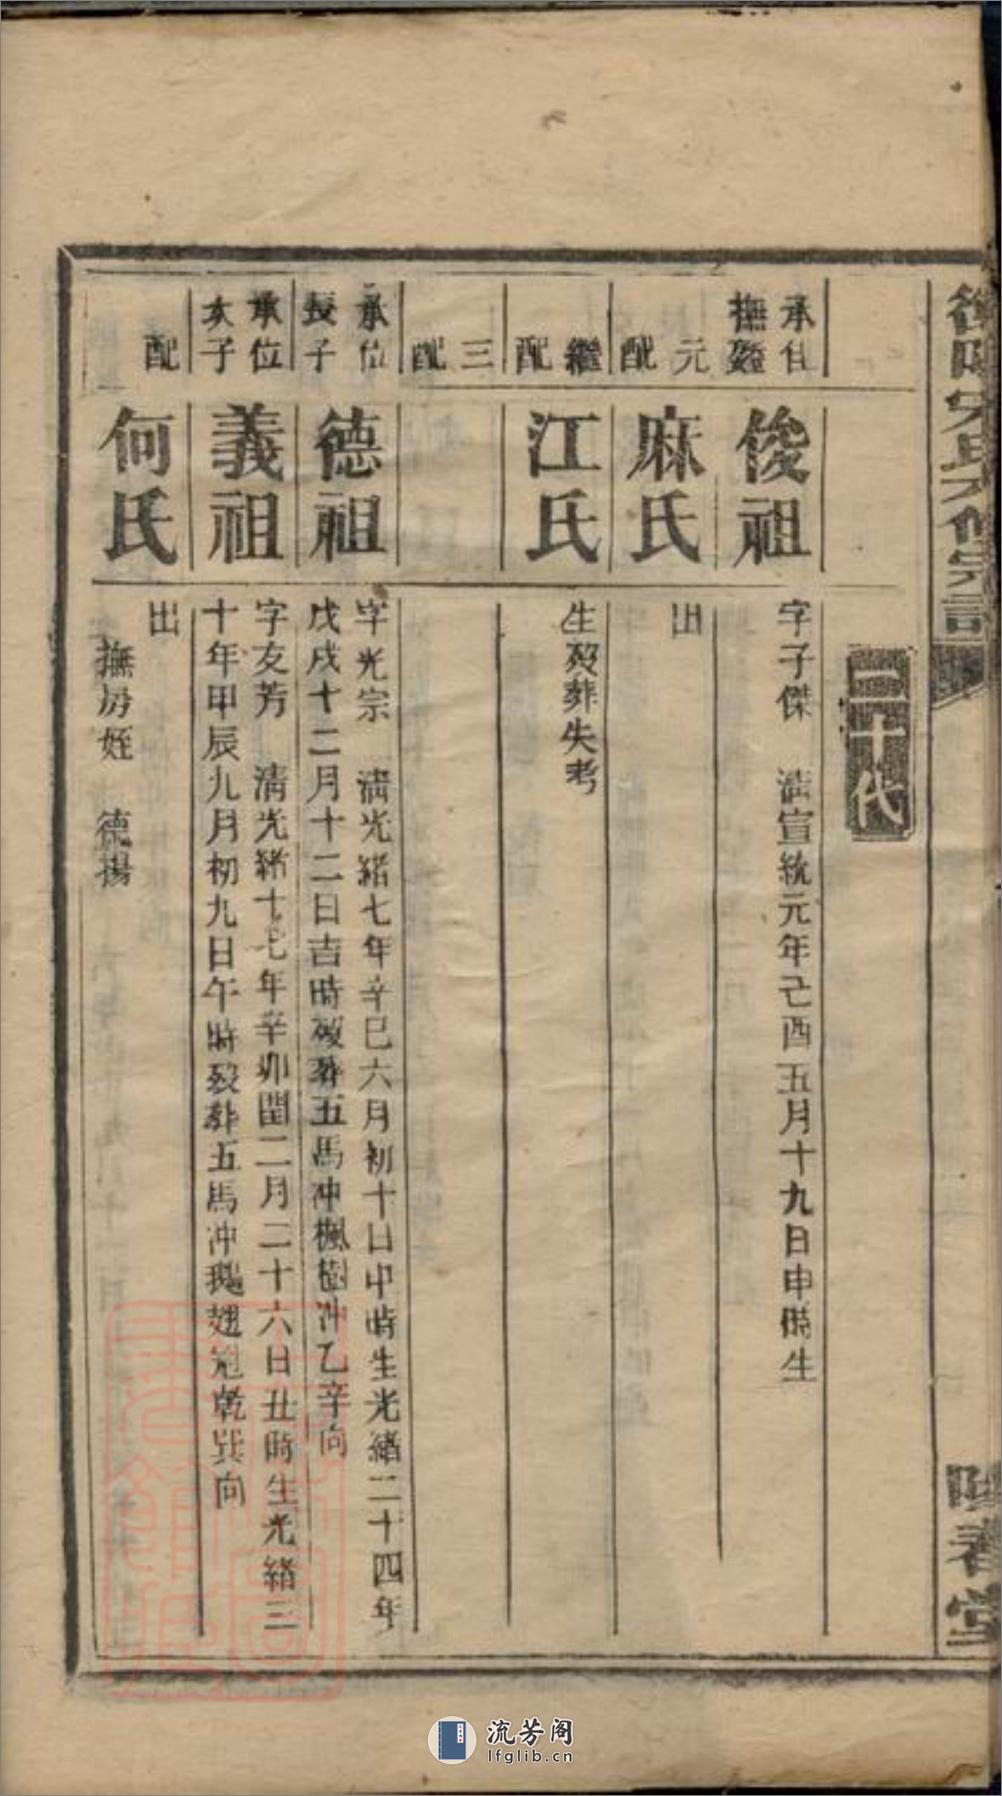 二十代
承位
撫姪
俊祖
字子傑　清宣統元年己酉五月十九日申時生
元
配
麻氏
出
繼
配
江氏
生歿葬失考
三
配
承位
長子
德祖
字光宗　清光緒七年辛巳六月初十日申時生光緒二十四年
戊戌十二月十二日吉時歿葬五馬冲楓樹冲乙辛向
承位
次子
義祖
字友芳　清光緒十七年辛卯閏二月二十六日丑時生光緒三
十年甲辰九月初九日午時歿葬五馬冲翅乾巽向
配
何氏
出
撫房姪　德揚
宋氏六修宗譜
堂
流芳阁
lfglib.cn